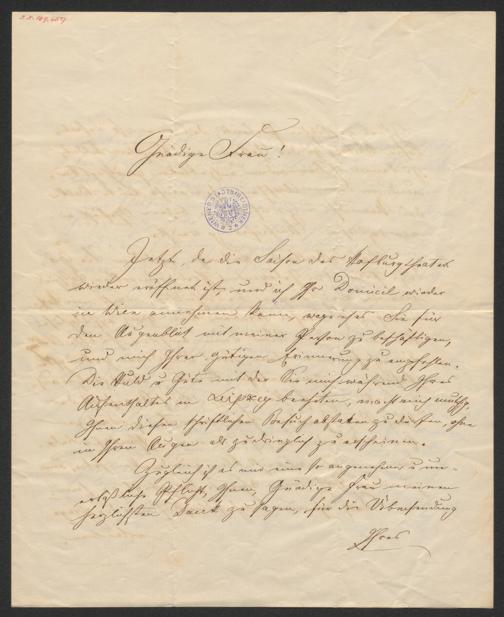 Gnädige Frau!
Jetzt, da die Saison des Hofburgtheaters
wieder eröffnet ist, und ich Ihr Domicil wieder
in Wien annehmen kann, wage ich es Sie für
den Augenblick mit meiner Person zu beschäftigen,
und mich Ihrer gütigen Erinnerung zu empfehlen.
Die Huld u Güte mit der Sie mich während Ihres
Aufenthaltes in Leipzig beehrten, macht mich muthig,
Ihnen diesen schriftlichen Besuch abstatten zu dürfen, ohne
in Ihren Augen als zudringlich zu erscheinen.
Zugleich ist es mir eine so angenehme, u un-
erläßliche Pflicht, Ihnen, Gnädige Frau meinen
herzlichsten Dank zu sagen, für die Übersendung
Ihres